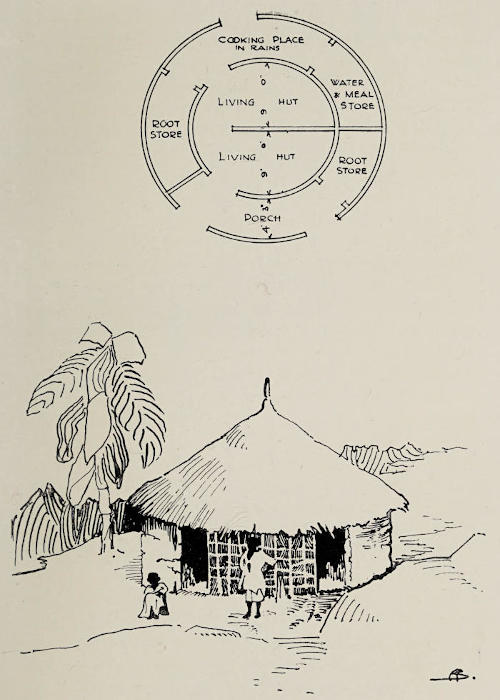 COOKING PLACE
IN RAINS
WATER
& MEAL
STORE
LIVING HUT
ROOT
STORE
LIVING HUT
ROOT
STORE
PORCH